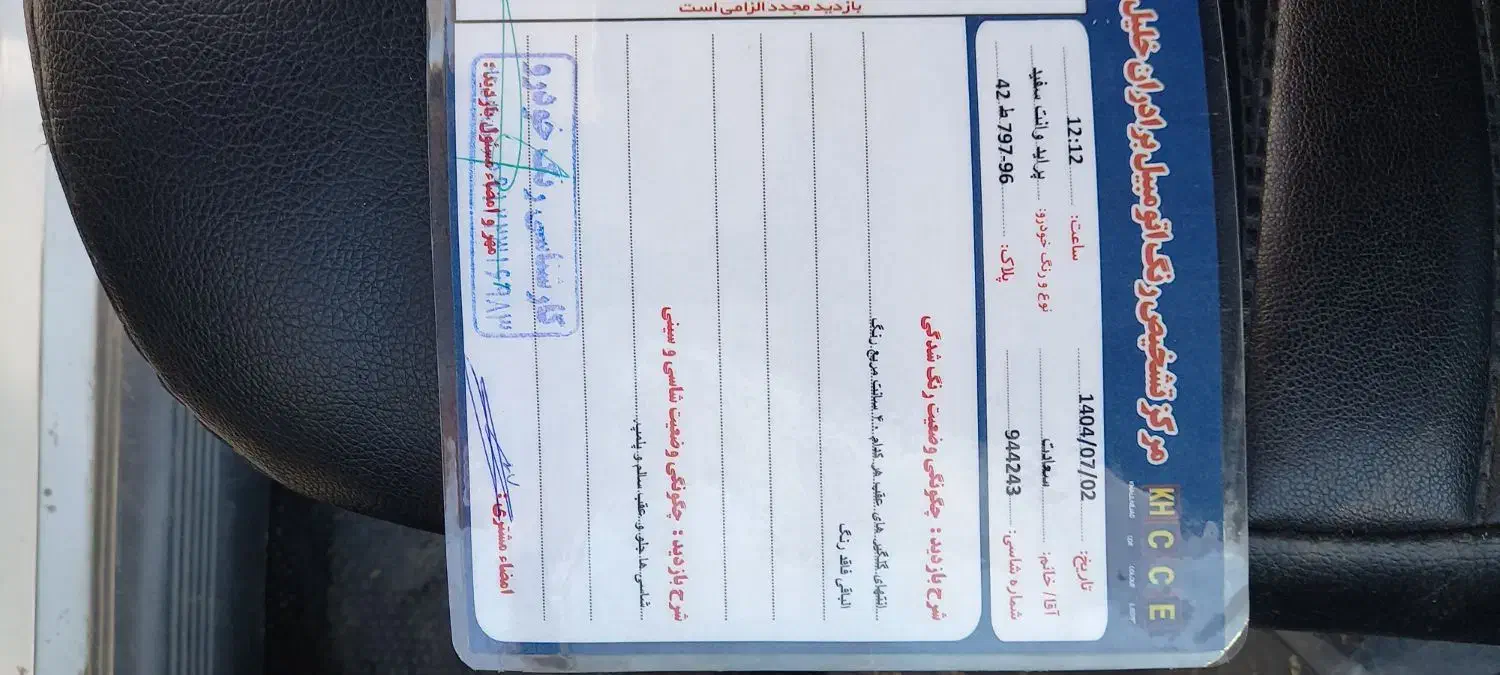 مرکز تشخیص رنگ اتومبیل برادران خلیل
KH C C E
تاریخ: 1404/07/02 ساعت: 12:12
آقا/ خانم: سعادت نوع و رنگ خودرو: پراید وانت سفید
شماره شاسی: 944243 پلاک: 96-797 ط 42
شرح بازدید : چگونگی وضعیت رنگ شدگی
انتهای گلگیر های عقب هر کدام ۴۰ سانت مربع رنگ
الباقی فاقد رنگ
شرح بازدید : چگونگی وضعیت شاسی و سینی
شاسی ها جلو و عقب سالم و پلمپ
کارشناسی رنگ خودرو
امضاء مشتری: مهر و امضاء مسئول بازدید:
بازدید مجدد الزامی است